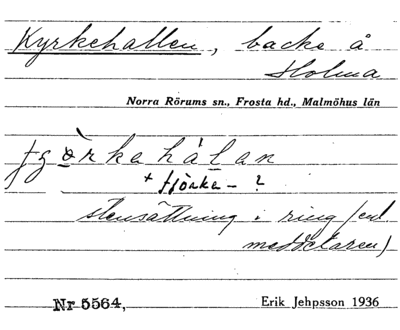 Kyrkehallen, backe å
Holma
Norra Rörums sn., Frosta hd., Malmöhus län
+ fjörke- ?
stensättning i ring (enl
meddelaren)
Nr 5564, Erik Jehpsson 1936